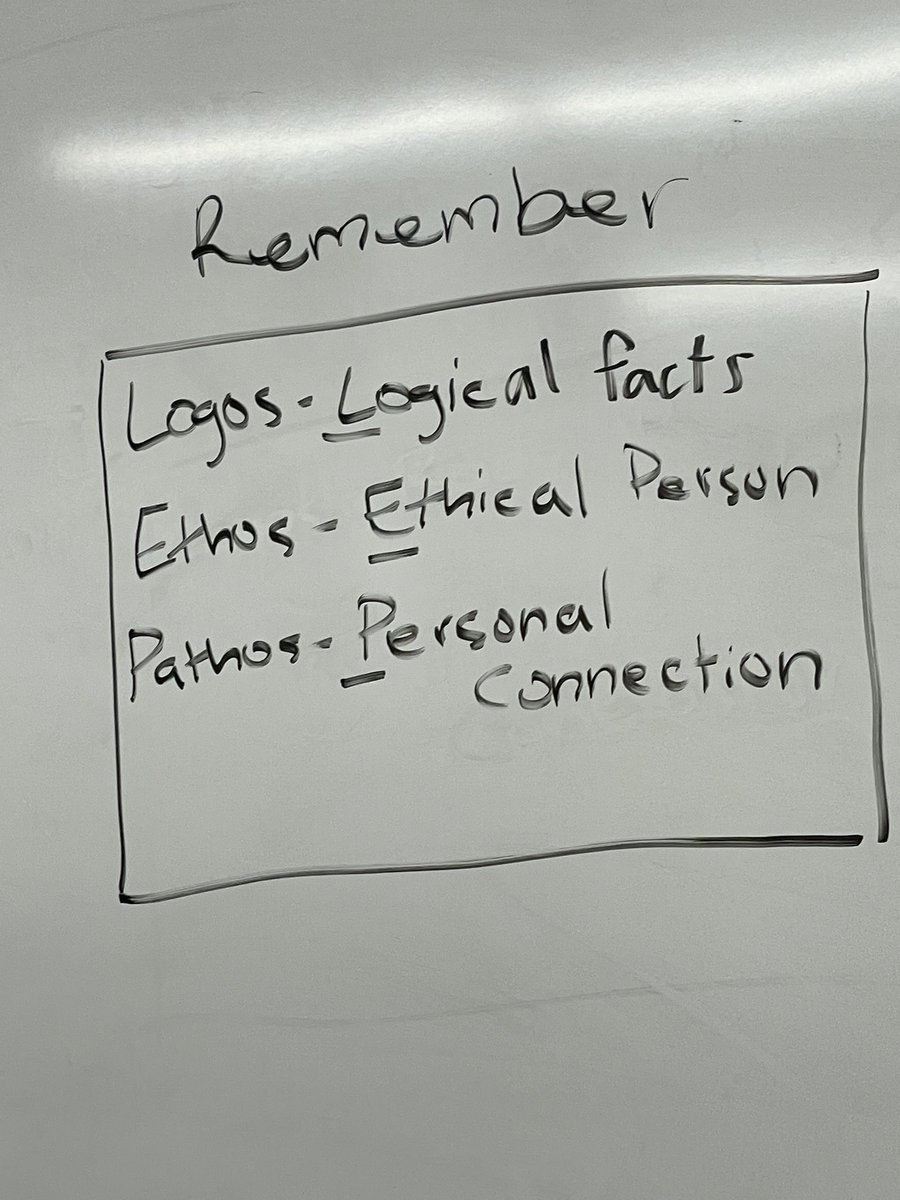 Remember
Logos - Logical facts
Ethos - Ethical Person
Pathos - Personal
Connection